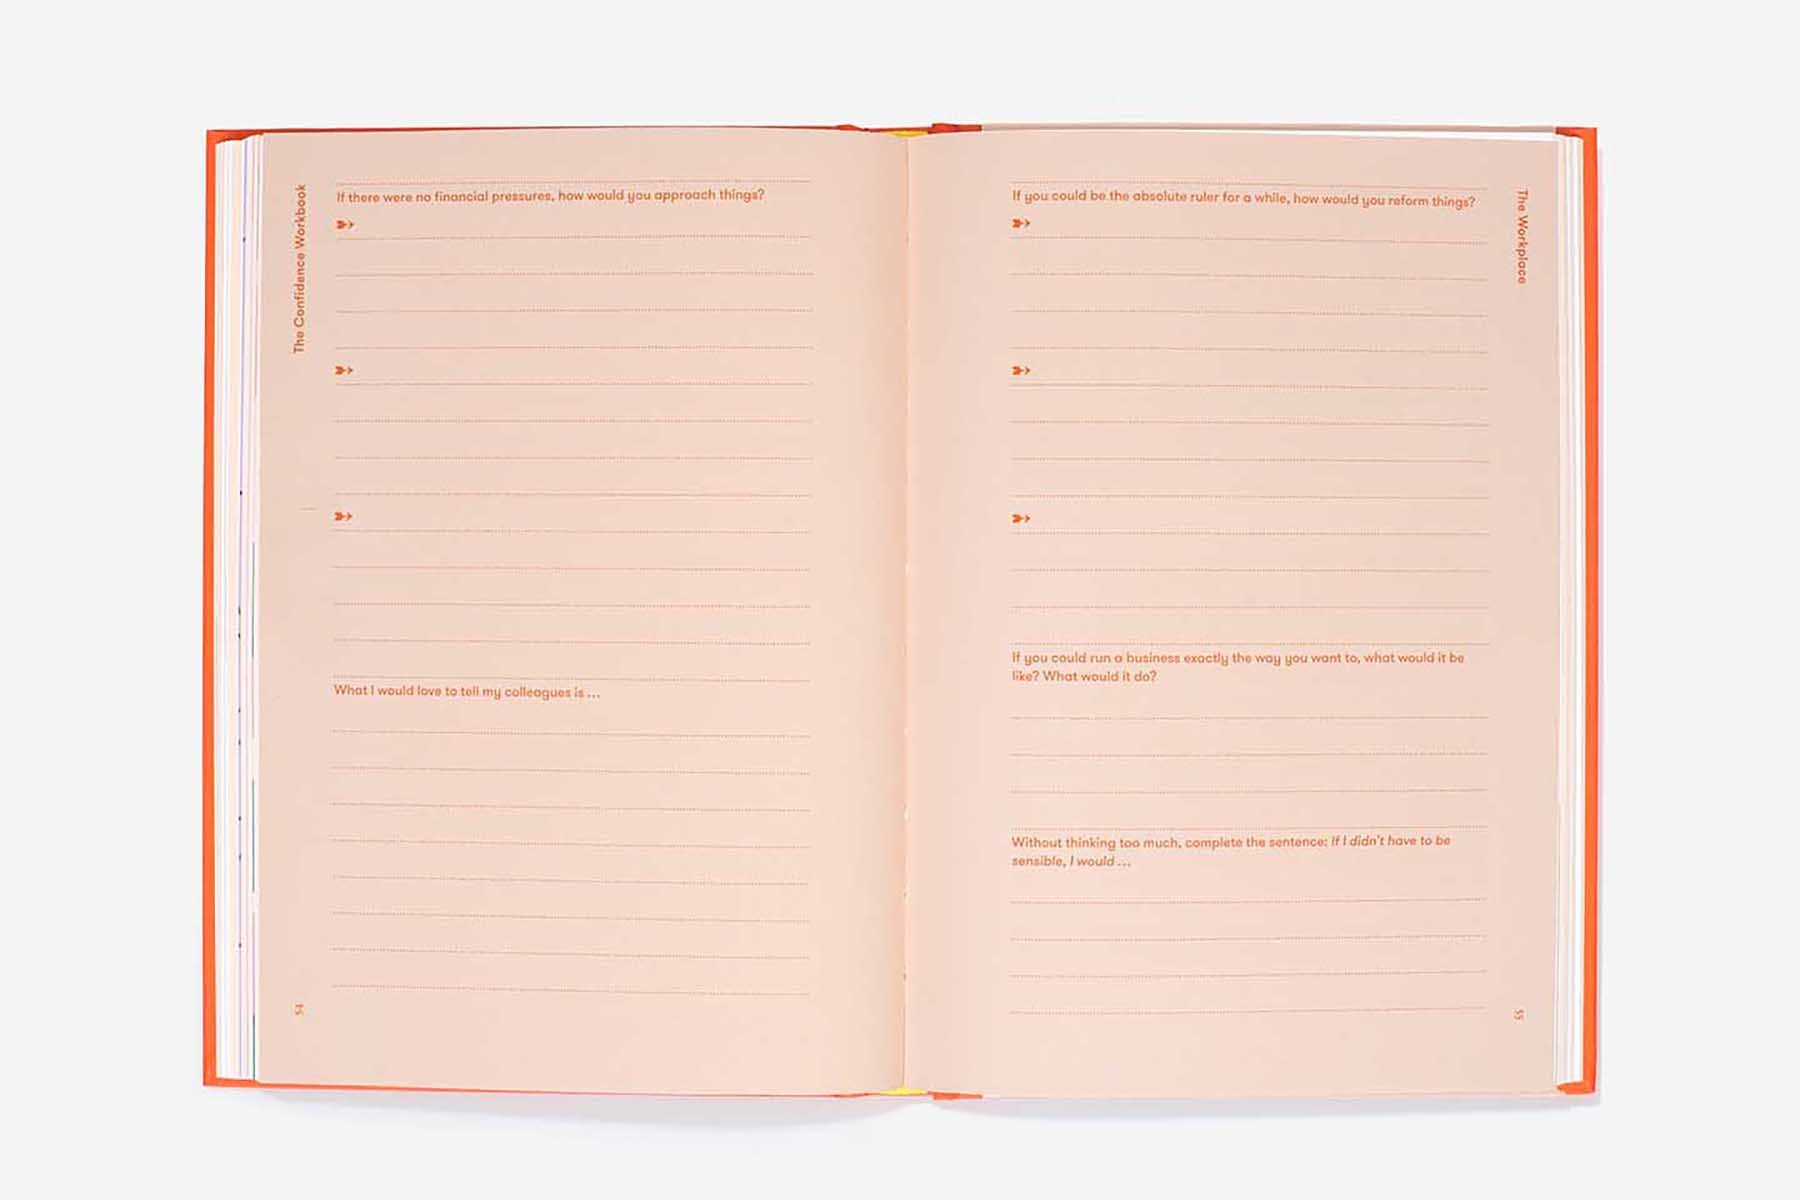 The Confidence Workbook
If there were no financial pressures, how would you approach things?
What I would love to tell my colleagues is ...
54
If you could be the absolute ruler for a while, how would you reform things?
If you could run a business exactly the way you want to, what would it be
like? What would it do?
Without thinking too much, complete the sentence: If I didn't have to be
sensible, I would ...
The Workplace
55